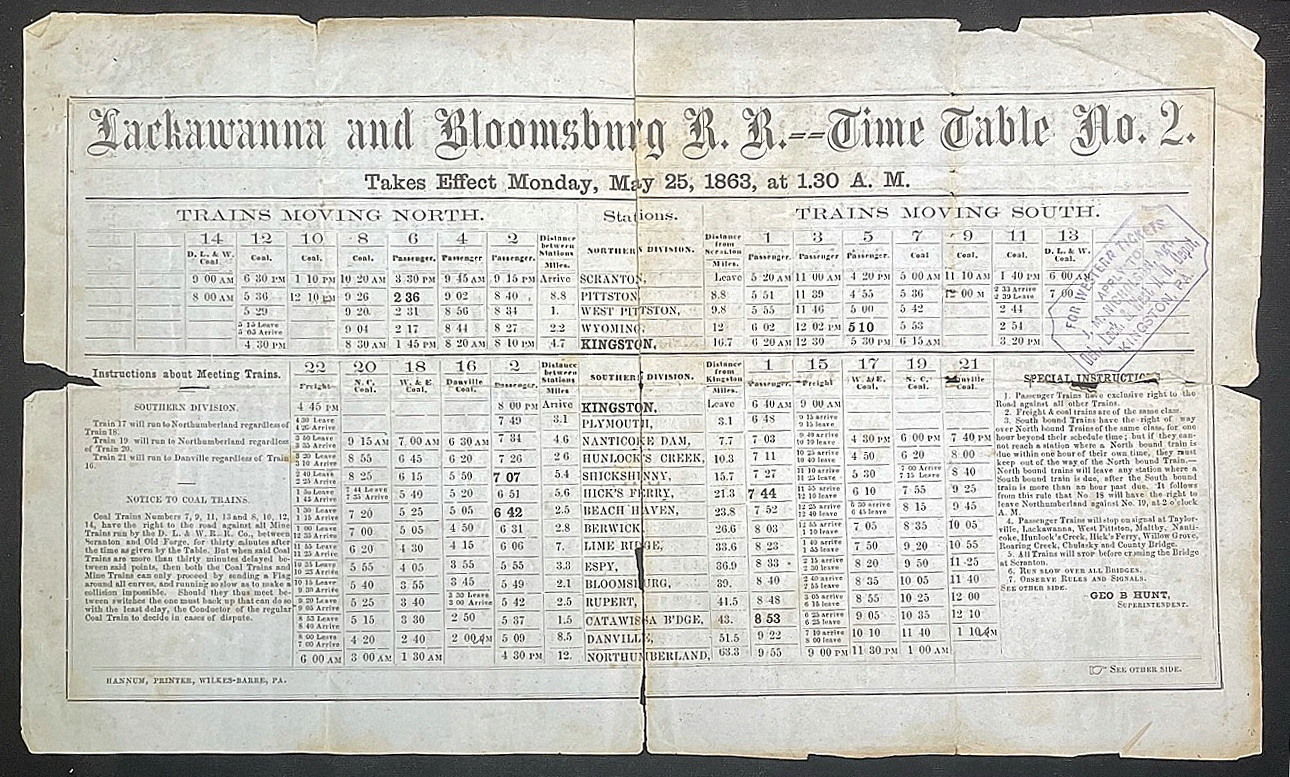 Lackawanna and Bloomsburg R. R.--Time Table No. 2.
Takes Effect Monday, May 25, 1863, at 1.30 A. M.
TRAINS MOVING NORTH. Stations. TRAINS MOVING SOUTH.
14 12 10 8 6 4 2 Distance between Stations Miles. NORTHERN DIVISION. Distance from Scranton Miles. 1 3 5 7 9 11 13
D. L. & W. Coal. Coal. Coal. Coal. Passenger. Passenger. Passenger. Passenger. Passenger. Passenger. Coal Coal. Coal. D. L. & W. Coal.
9 00 AM 6 30 PM 1 10 PM 10 20 AM 3 30 PM 9 45 AM 9 15 PM Arrive SCRANTON, Leave 5 20 AM 11 00 AM 4 20 PM 5 00 AM 11 10 AM 1 40 PM 6 00 AM
8 00 AM 5 36 12 10 PM 9 26 2 36 9 02 8 40 8.8 PITTSTON, 8.8 5 51 11 39 4 55 5 36 12 00 M 2 33 Arrive 2 39 Leave 7 00
5 29 9 20 2 31 8 56 8 34 1. WEST PITTSTON, 9.8 5 55 11 46 5 00 5 42 2 44
5 15 Leave 5 05 Arrive 9 04 2 17 8 44 8 27 2.2 WYOMING, 12 6 02 12 02 PM 5 10 5 53 2 54
4 30 PM 8 30 AM 1 45 PM 8 20 AM 8 10 PM 4.7 KINGSTON, 16.7 6 20 AM 12 30 5 30 PM 6 15 AM 3 20 PM
FOR WESTERN TICKETS
APPLY TO
KINGSTON, PA.
Instructions about Meeting Trains.
SOUTHERN DIVISION.
Train 17 will run to Northumberland regardless of
Train 18.
Train 19 will run to Northumberland regardless
of Train 20.
Train 21 will run to Danville regardless of Train
16.
NOTICE TO COAL TRAINS.
Coal Trains Numbers 7, 9, 11, 13 and 8, 10, 12,
14, have the right to the road against all Mine
Trains run by the D. L. & W. R. R. Co., between
Scranton and Old Forge, for thirty minutes after
the time as given by the Table. But when said Coal
Trains are more than thirty minutes delayed be-
tween said points, then both the Coal Trains and
Mine Trains can only proceed by sending a Flag
around all curves, and running so slow as to make a
collision impossible. Should they thus meet be-
tween switches the one must back up that can do so
with the least delay, the Conductor of the regular
Coal Train to decide in cases of dispute.
22 20 18 16 2 Distance between Stations Miles SOUTHERN DIVISION. Distance from Kingston Miles. 1 15 17 19 21
Freight N. C. Coal. W. & E. Coal. Danville Coal. Passenger. Passenger. Freight W. & E. Coal. N. C. Coal. Danville Coal.
4 45 PM 8 00 PM Arrive KINGSTON, Leave 6 40 AM 9 00 AM
4 30 Leave 4 25 Arrive 7 49 3.1 PLYMOUTH, 3.1 6 48 9 15 arrive 9 15 leave
3 50 Leave 3 35 Arrive 9 15 AM 7 00 AM 6 30 AM 7 34 4.6 NANTICOKE DAM, 7.7 7 03 9 40 arrive 10 10 leave 4 30 PM 6 00 PM 7 40 PM
3 20 Leave 3 10 Arrive 8 55 6 45 6 20 7 26 2 6 HUNLOCK'S CREEK, 10.3 7 11 10 25 arrive 10 40 leave 4 50 6 20 8 00
2 40 Leave 2 25 Arrive 8 25 6 15 5 50 7 07 5.4 SHICKSHINNY, 15.7 7 27 11 10 arrive 11 25 leave 5 30 7 00 Arrive 7 15 Leave 8 40
1 50 Leave 1 45 Arrive 7 44 Leave 7 35 Arrive 5 49 5 20 6 51 5.6 HICK'S FERRY, 21.3 7 44 11 55 arrive 12 10 leave 6 10 7 55 9 25
1 30 Leave 1 15 Arrive 7 20 5 25 5 05 6 42 2.5 BEACH HAVEN, 23.8 7 52 12 25 arrive 12 40 leave 6 30 arrive 6 45 leave 8 15 9 45
1 00 Leave 12 35 Arrive 7 00 5 05 4 50 6 31 2.8 BERWICK, 26.6 8 03 12 55 arrive 1 10 leave 7 05 8 35 10 05
11 55 Leave 11 25 Arrive 6 20 4 30 4 15 6 06 7. LIME RIDGE, 33.6 8 23 1 40 arrive 1 55 leave 7 50 9 20 10 55
10 55 Leave 10 25 Arrive 5 55 4 05 3 55 5 55 3.3 ESPY, 36.9 8 33 2 15 arrive 2 30 leave 8 20 9 50 11 25
10 15 Leave 9 30 Arrive 5 40 3 55 3 45 5 49 2.1 BLOOMSBURG, 39. 8 40 2 40 arrive 2 55 leave 8 35 10 05 11 40
9 20 Leave 9 05 Arrive 5 25 3 40 3 30 Leave 3 00 Arrive 5 42 2.5 RUPERT, 41.5 8 48 3 05 arrive 6 15 leave 8 55 10 25 12 00
8 53 Leave 8 40 Arrive 5 15 3 30 2 50 5 37 1.5 CATAWISSA B'DGE, 43. 8 53 6 25 arrive 6 25 leave 9 05 10 35 12 10
8 00 Leave 7 00 Arrive 4 20 2 40 2 00 AM 5 09 8.5 DANVILLE, 51.5 9 22 7 10 arrive 8 00 leave 10 10 11 40 1 10 AM
6 00 AM 3 00 AM 1 30 AM 4 30 PM 12. NORTHUMBERLAND, 63.3 9 55 9 00 PM 11 30 PM 1 00 AM
SPECIAL INSTRUCTIONS
1. Passenger Trains have exclusive right to the
Road against all other Trains.
2. Freight & coal trains are of the same class.
3. South bound Trains have the right of way
over North bound Trains of the same class, for one
hour beyond their schedule time; but if they can-
not reach a station where a North bound train is
due within one hour of their own time, they must
keep out of the way of the North bound Train.—
North bound trains will leave any station where a
South bound train is due, after the South bound
train is more than an hour past due. It follows
from this rule that No 18 will have the right to
leave Northumberland against No. 19, at 2 o'clock
A. M.
4. Passenger Trains will stop on signal at Taylor-
ville, Lackawanna, West Pittston, Maltby, Nanti-
coke, Hunlock's Creek, Hick's Ferry, Willow Grove,
Roaring Creek, Chulasky and County Bridge.
5. All Trains will stop before crossing the Bridge
at Scranton.
6. RUN SLOW OVER ALL BRIDGES.
7. OBSERVE RULES AND SIGNALS.
SEE OTHER SIDE.
GEO B HUNT,
SUPERINTENDENT.
HANNUM, PRINTER, WILKES-BARRE, PA.
SEE OTHER SIDE.